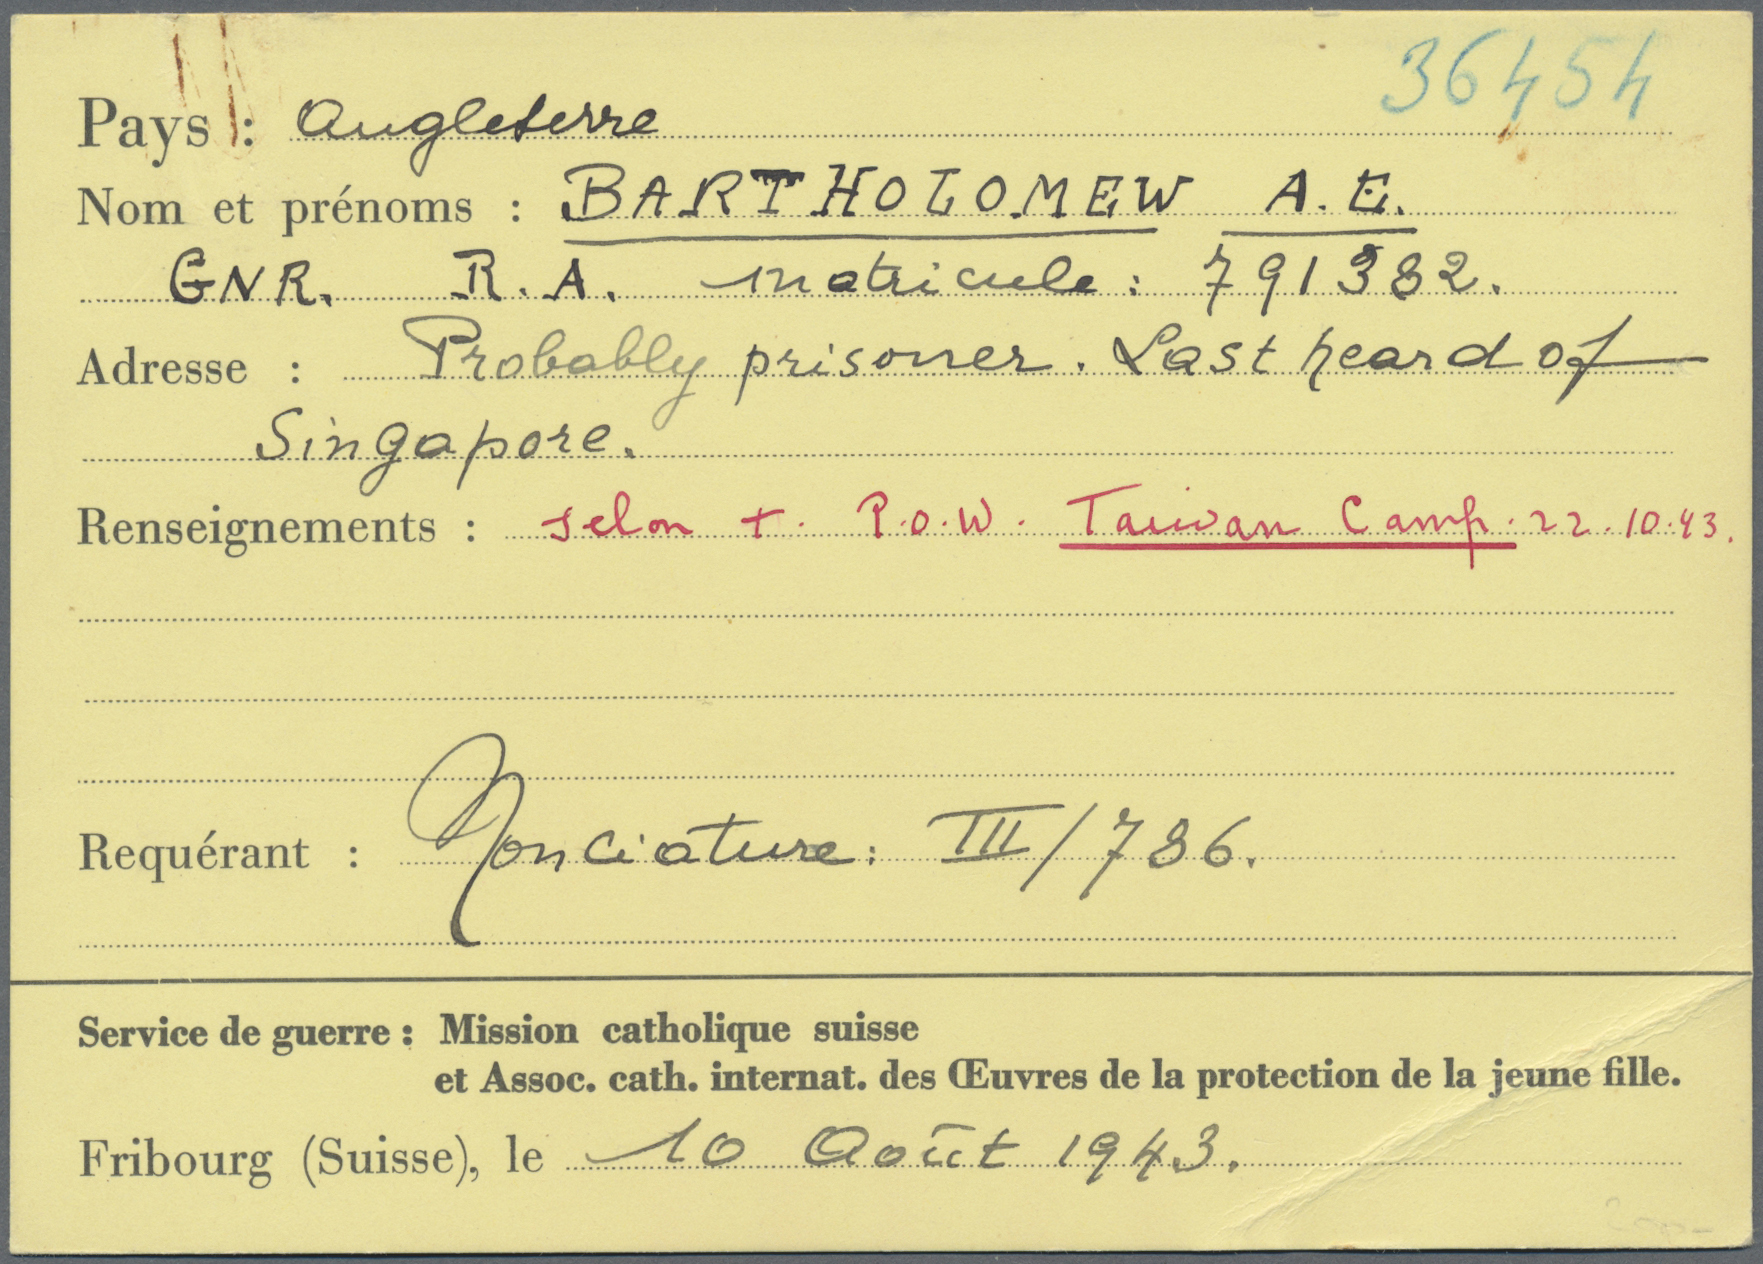 36454
Pays : Angleterre
Nom et prénoms : BARTHOLOMEW A.E.
GNR. R.A. matricule : 791382.
Adresse : Probably prisoner. Last heard of
Singapore.
Renseignements : selon +. P.O.W. Taiwan Camp. 22.10.43.
Requérant : Nonciature: III/786.
Service de guerre : Mission catholique suisse
et Assoc. cath. internat. des Œuvres de la protection de la jeune fille.
Fribourg (Suisse), le 10 Août 1943.